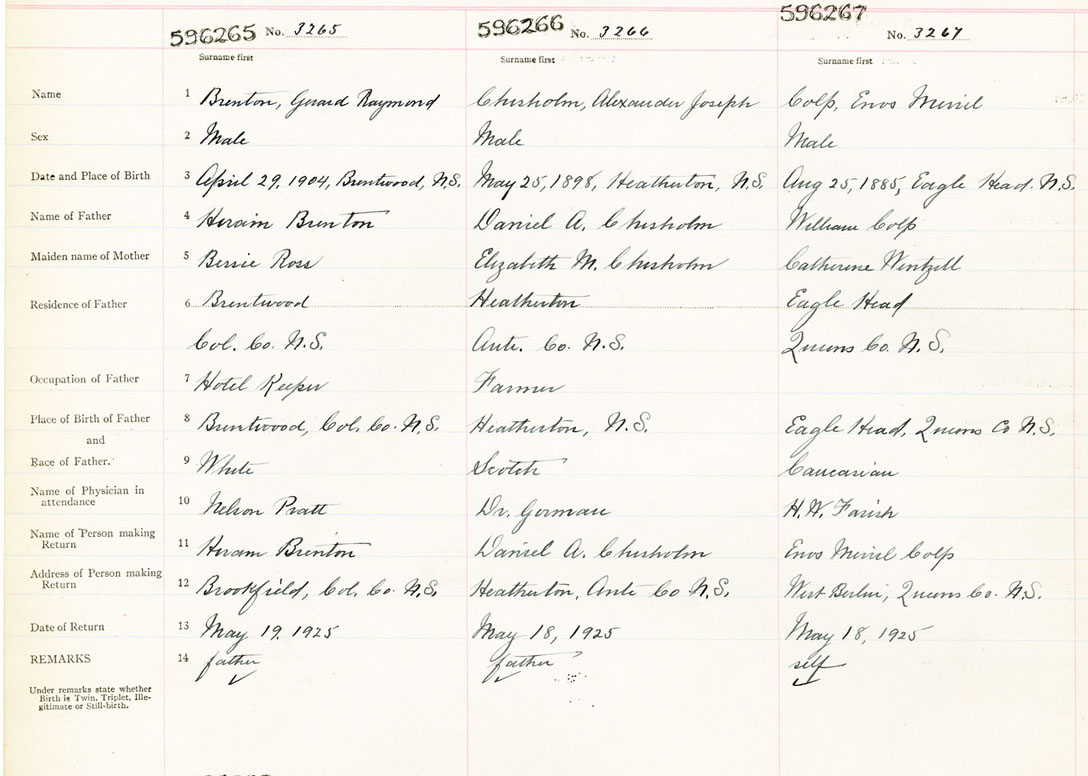 596265 No. 3265 596266 No. 3266 596267 No. 3267
Surname first Surname first Surname first
Name 1 Brenton, Gerard Raymond Chisholm, Alexander Joseph Colp, Enos Merril
Sex 2 Male Male Male
Date and Place of Birth 3 April 29, 1904, Brentwood, N.S. May 25, 1898, Heatherton, N.S. Aug 25, 1885, Eagle Head. N.S.
Name of Father 4 Hiram Brenton Daniel A. Chisholm William Colp
Maiden name of Mother 5 Bessie Ross Elizabeth M. Chisholm Catherine Wentzell
Residence of Father 6 Brentwood Heatherton Eagle Head
Col. Co. N.S. Ante. Co. N.S. Queens Co. N.S.
Occupation of Father 7 Hotel Keeper Farmer
Place of Birth of Father 8 Brentwood, Col. Co. N.S. Heatherton, N.S. Eagle Head, Queens Co N.S.
and
Race of Father. 9 White Scotch Caucasian
Name of Physician in
attendance 10 Nelson Pratt Dr. Gorman H. W. Farish
Name of Person making
Return 11 Hiram Brenton Daniel A. Chisholm Enos Merril Colp
Address of Person making
Return 12 Brookfield, Col. Co. N.S. Heatherton, Ante Co N.S. West Berlin, Queens Co. N.S.
Date of Return 13 May 19, 1925 May 18, 1925 May 18, 1925
REMARKS 14 father father self
Under remarks state whether
Birth is Twin, Triplet, Ille-
gitimate or Still-birth.